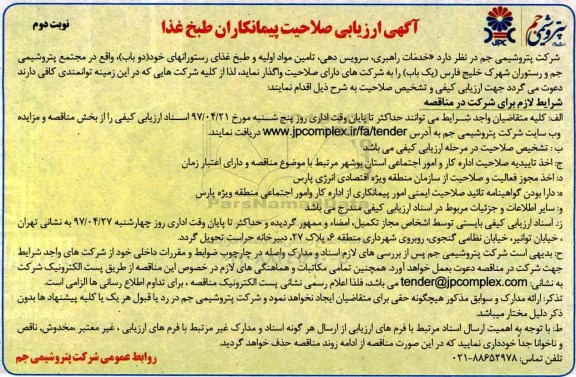 نوبت دوم
آگهی ارزیابی صلاحیت پیمانکاران طبخ غذا
پتروشیمی جم
JPC
شرکت پتروشیمی جم در نظر دارد «خدمات راهبری، سرویس دهی، تامین مواد اولیه و طبخ غذای رستورانهای خود(دو باب)، واقع در مجتمع پتروشیمی
جم و رستوران شهرک خلیج فارس (یک باب) را به شرکت های دارای صلاحیت واگذار نماید، لذا از کلیه شرکت هایی که در این زمینه توانمندی کافی دارند
دعوت می گردد جهت ارزیابی کیفی و تشخیص صلاحیت به شرح ذیل اقدام نمایند:
شرایط لازم برای شرکت در مناقصه
الف: کلیه متقاضیان واجد شرایط می توانند حداکثر تا پایان وقت اداری روز پنج شنبه مورخ ۹۷/۰۴/۲۱ اسناد ارزیابی کیفی را از بخش مناقصه و مزایده
وب سایت شرکت پتروشیمی جم به آدرس www.jpcomplex.ir/fa/tender دریافت نمایند.
ب : تشخیص صلاحیت در مرحله ارزیابی کیفی می باشد
ج: اخذ تاییدیه صلاحیت اداره کار و امور اجتماعی استان بوشهر مرتبط با موضوع مناقصه و دارای اعتبار زمان
د: اخذ مجوز فعالیت و صلاحیت از سازمان منطقه ویژه اقتصادی انرژی پارس
ه: دارا بودن گواهینامه تائید صلاحیت ایمنی امور پیمانکاری از اداره کار وامور اجتماعی منطقه ویژه پارس
و: سایر اطلاعات و جزئیات مربوط در اسناد ارزیابی کیفی مندرج می باشد
ز: اسناد ارزیابی کیفی بایستی توسط اشخاص مجاز تکمیل، امضاء و ممهور گردیده و حداکثر تا پایان وقت اداری روز چهارشنبه ۹۷/۰۴/۲۷ به نشانی تهران
، خیابان توانیر، خیابان نظامی گنجوی، روبروی شهرداری منطقه ۶، پلاک ۲۷، دبیرخانه حراست تحویل گردد.
ح: بدیهی است شرکت پتروشیمی جم پس از بررسی های لازم اسناد و مدارک ارسالی و در چارچوب ضوابط و مقررات داخلی خود از شرکت های واجد شرایط
جهت شرکت در مناقصه دعوت بعمل خواهد آورد همچنین تمامی مکاتبات و هماهنگی های لازم در خصوص این مناقصه از طریق پست الکترونیک شرکت
به نشانی: tender@jpcomplex.com می باشد، فلذا اعلام رسمی نشانی پست الکترونیک مناقصه ، برای تداوم اطلاع رسانی ها الزامی است.
تذکر: ارائه مدارک و سوابق مذکور هیچگونه حقی برای متقاضیان ایجاد نخواهد نمود و شرکت پتروشیمی جم در رد یا قبول هر یک یا کلیه پیشنهاد ها بدون
ذکر دلیل مختار میباشد.
ط: با توجه به اهمیت ارسال اسناد مرتبط با فرم های ارزیابی از ارسال هر گونه اسناد و مدارک غیر مرتبط با فرم های ارزیابی ، غیر معتبر مخدوش، ناقص
و ناخوانا جدا خودداری نمایید که در این صورت مناقصه از ادامه روند مناقصه حذف خواهد گردید.
تلفن تماس: ۸۸۶۵۲۹۷۸-۰۲۱
روابط عمومی شرکت پتروشیمی جم